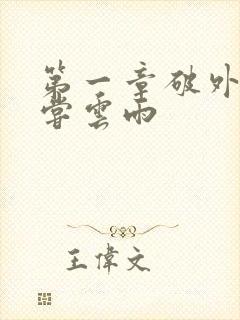 第一章破外
嘗雲雨
王偉文